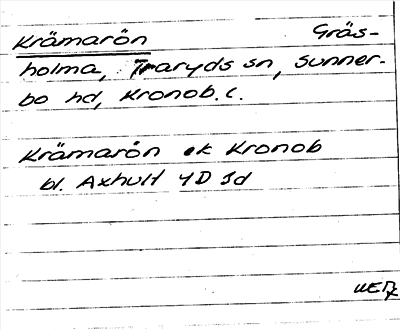 Krämarön Gräs-
holma, Traryds sn, Sunner-
bo hd, Kronob. l.
Krämarön ek Kronob
bl. Axhult 4D Jd